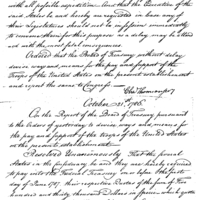 with all possible expedition. And that the Executive of the
said States be and hereby are requested in case any of
their Legislatures should not be in session immediately
to convene them for this purpose as a delay may be attend
ed with the most fatal consequences.
Ordered that the Board of Treasury without delay
devise ways and means for the pay and support of the
Troops of the United States on the present establishment
and report the same to Congress.
Chas Thomson secy
October 21st 1786.
On the Report of the Board of Treasury pursuant
to the Order of yesterday to devise ways and means for
the pay and support of the troops of the United States
on the present establishment.
Resolved Unanimously That the several
States in the be and they are hereby required
to pay into the Federal Treasury on or before the first
day of June 1787 their respective Quotas of five
hundred and thirty thousand Dollars in specie which